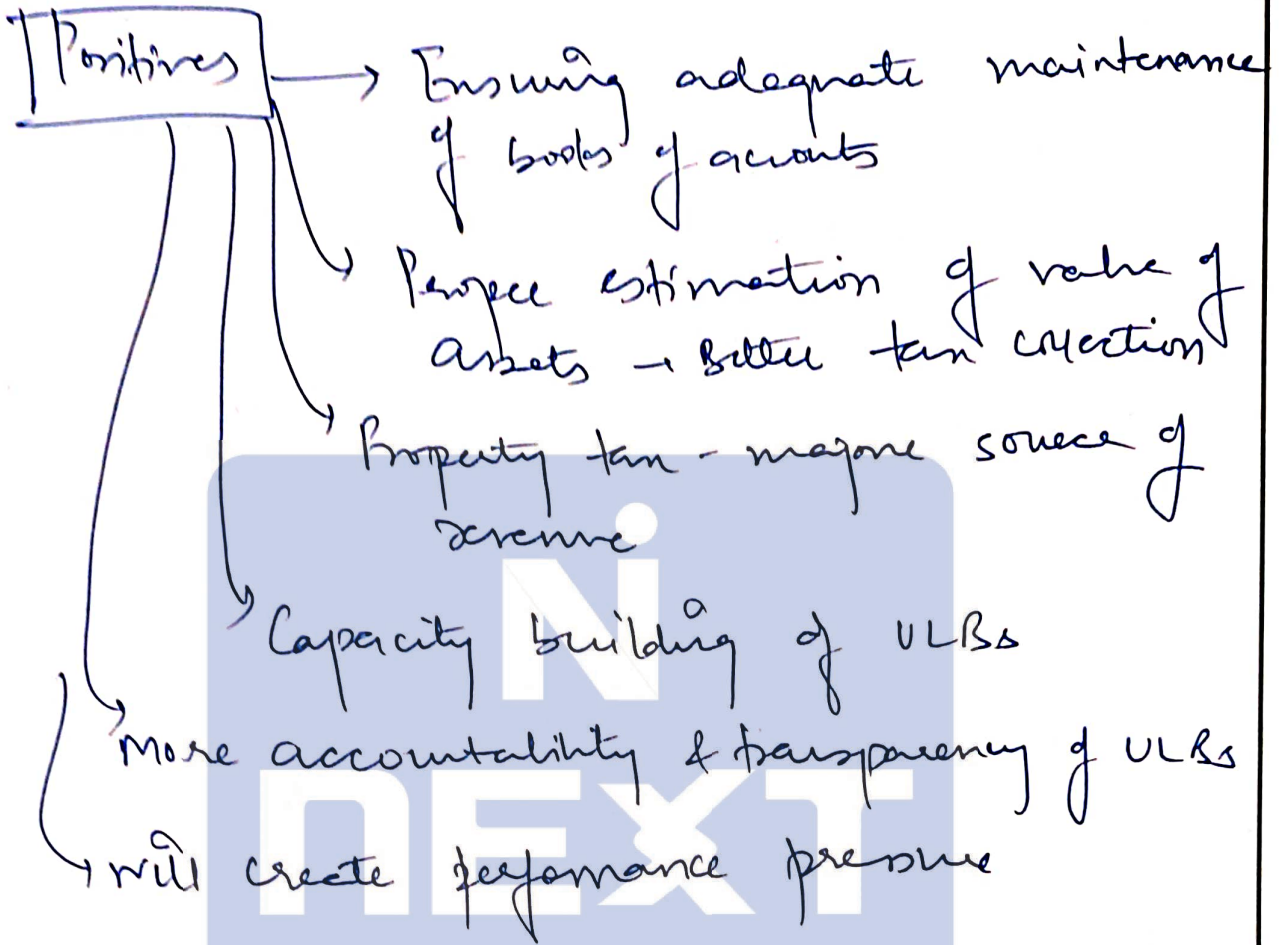 Positives → Ensuring adequate maintenance
of books of accounts
Proper estimation of value of
assets → Better tax collection
Property tax - major source of
revenue
Capacity building of ULBs
More accountability & transparency of ULBs
will create perfomance pressure
Ni
NEXT